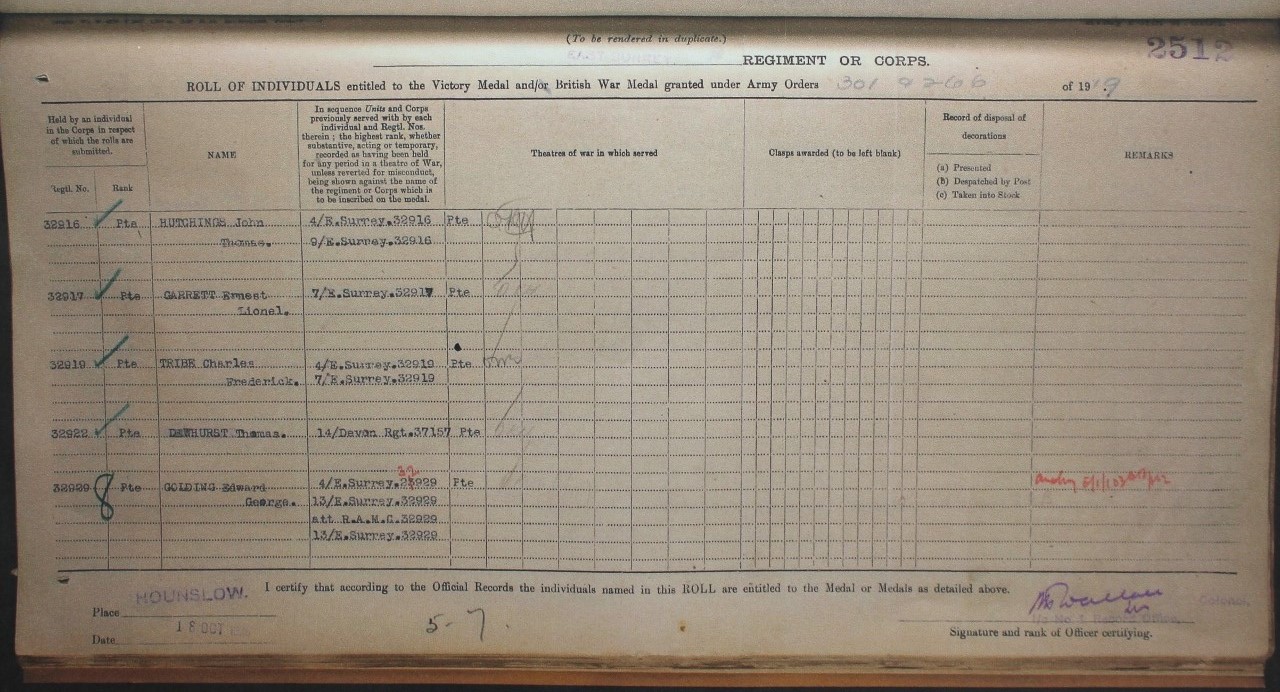 (To be rendered in duplicate.)
2512
EAST SURREY REGIMENT OR CORPS.
ROLL OF INDIVIDUALS entitled to the Victory Medal and/or British War Medal granted under Army Orders 301 & 266 of 1919.
Held by an individual in the Corps in respect of which the rolls are submitted.
Regtl. No. Rank
NAME
In sequence Units and Corps previously served with by each individual and Regtl. Nos. therein; the highest rank, whether substantive, acting or temporary, recorded as having been held for any period in a theatre of War, unless reverted for misconduct, being shown against the name of the regiment or Corps which is to be inscribed on the medal.
Theatres of war in which served
Clasps awarded (to be left blank)
Record of disposal of decorations
(a) Presented
(b) Despatched by Post
(c) Taken into Stock
REMARKS
32916 Pte HUTCHINGS John 4/E.Surrey.32916 Pte
Thomas. 9/E.Surrey.32916
32917 Pte GARRETT Ernest 7/E.Surrey.32917 Pte
Lionel.
32919 Pte TRIBE Charles 4/E.Surrey.32919 Pte
Frederick. 7/E.Surrey.32919
32922 Pte DEWHURST Thomas. 14/Devon Rgt.37157 Pte
32
32929 8 Pte GOLDING Edward 4/E.Surrey.23929 Pte
George. 13/E.Surrey.32929
att R.A.M.C.32929
13/E.Surrey.32929
I certify that according to the Official Records the individuals named in this ROLL are entitled to the Medal or Medals as detailed above.
Place HOUNSLOW.
Date 18 OCT
5-7.
Colonel,
i/c No. 1 Record Office,
Signature and rank of Officer certifying.